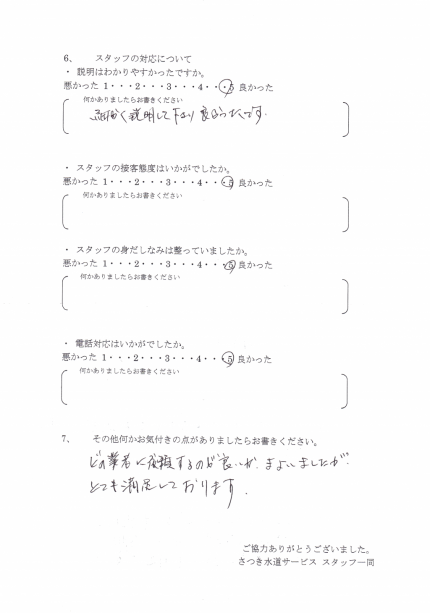 6、 スタッフの対応について
・ 説明はわかりやすかったですか。
悪かった 1・・・2・・・3・・・4・・・5 良かった
何かありましたらお書きください
細かく説明して下さり良かったです。
・ スタッフの接客態度はいかがでしたか。
悪かった 1・・・2・・・3・・・4・・・5 良かった
何かありましたらお書きください
・ スタッフの身だしなみは整っていましたか。
悪かった 1・・・2・・・3・・・4・・・5 良かった
何かありましたらお書きください
・ 電話対応はいかがでしたか。
悪かった 1・・・2・・・3・・・4・・・5 良かった
何かありましたらお書きください
7、 その他何かお気付きの点がありましたらお書きください。
どの業者に依頼するのが良いか、まよいましたが、
とても満足しております。
ご協力ありがとうございました。
さつき水道サービス スタッフ一同